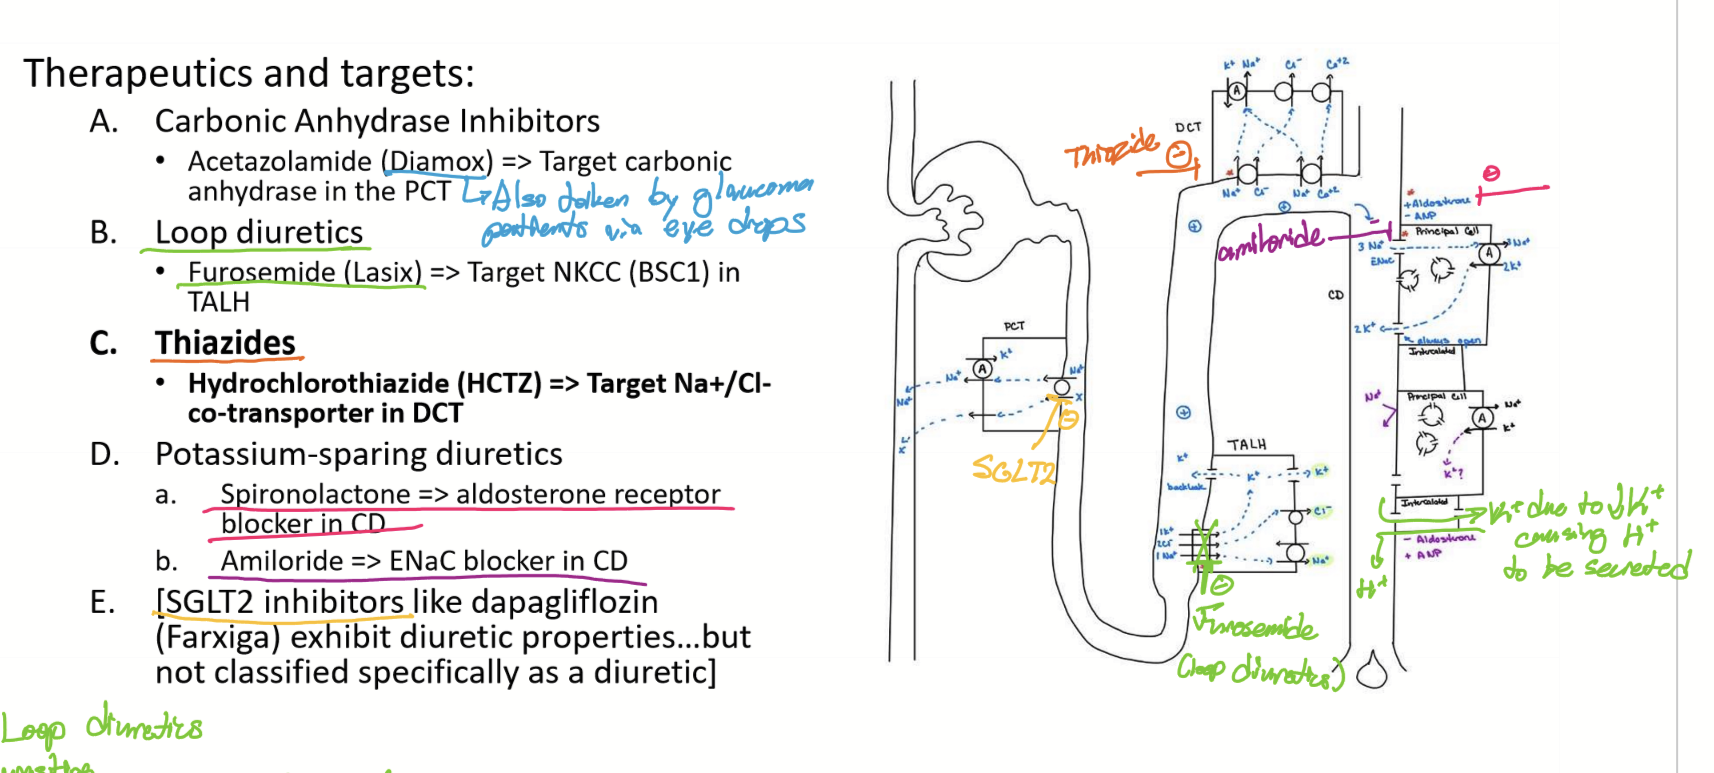 Therapeutics and targets:
A. Carbonic Anhydrase Inhibitors
• Acetazolamide (Diamox) => Target carbonic
anhydrase in the PCT
↳ Also taken by glaucoma
patients via eye drops
B. Loop diuretics
• Furosemide (Lasix) => Target NKCC (BSC1) in
TALH
C. Thiazides
• Hydrochlorothiazide (HCTZ) => Target Na+/Cl-
co-transporter in DCT
D. Potassium-sparing diuretics
a. Spironolactone => aldosterone receptor
blocker in CD
b. Amiloride => ENaC blocker in CD
E. [SGLT2 inhibitors like dapagliflozin
(Farxiga) exhibit diuretic properties...but
not classified specifically as a diuretic]
Loop diuretics
K+ Na+ Cl- Ca+2
A
DCT
Thiazide
Na+ Cl- Na+ Ca+2
+ Aldosterone
- ANP
Principal Cell
amiloride
3 Na+
3 Na+
ENaC
A
2K+
CD
2K+
always open
Intercalated
PCT
K+
A
Na+
Na+
Na+
X
X
SGLT2
Na+
Principal Cell
A
Na+
K+
K+?
TALH
K+
K+
K+
backleak
Cl-
1K+
2Cl-
1 Na+
Na+
Intercalated
K+ due to ↓K+
causing H+
to be secreted
- Aldosterone
+ ANP
H+
Furosemide
(loop diuretics)